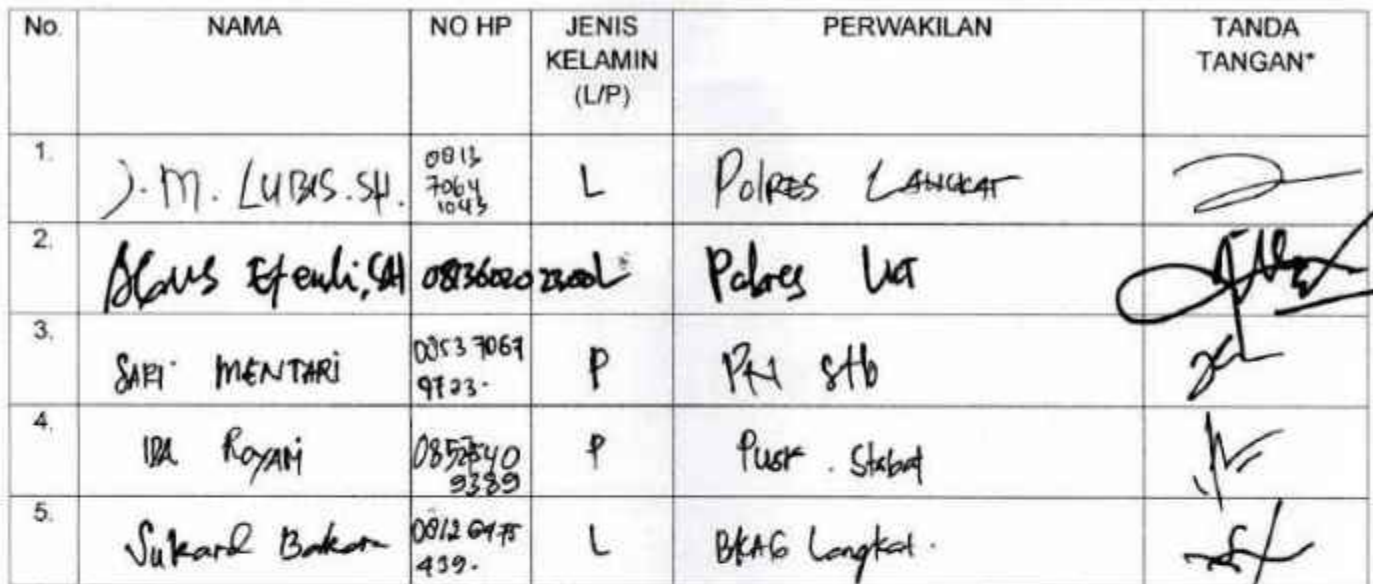 No. NAMA NO HP JENIS KELAMIN (L/P) PERWAKILAN TANDA TANGAN*
1. J. M. LUBIS. SH. 0813 7064 1043 L Polres LANGKAT
2. Agus Efendi, SH 081360202300 L Polres LKT
3. SARI MENTARI 0853 7067 9723. P PN Stb
4. IDA ROYANI 0852 7540 9389 P Pusk. Stabat
5. Sukardi Bakara 0812 6475 439. L BKAG Langkat.